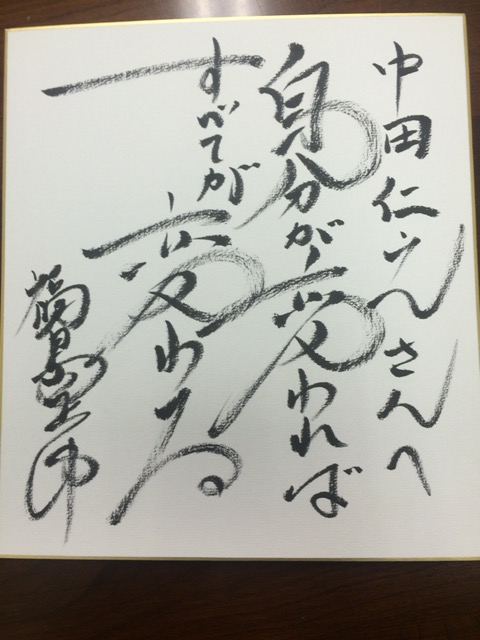 中田仁之さんへ
自分が変われば
すべてが変わる
福島正伸